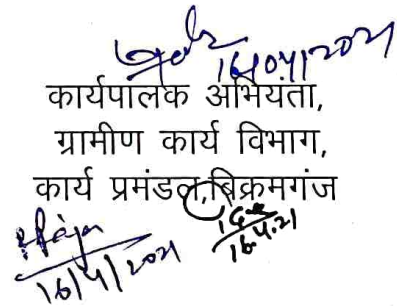 16/04/2021
कार्यपालक अभियंता,
ग्रामीण कार्य विभाग,
कार्य प्रमंडल,बिक्रमगंज
16.4.21
16/4/2021